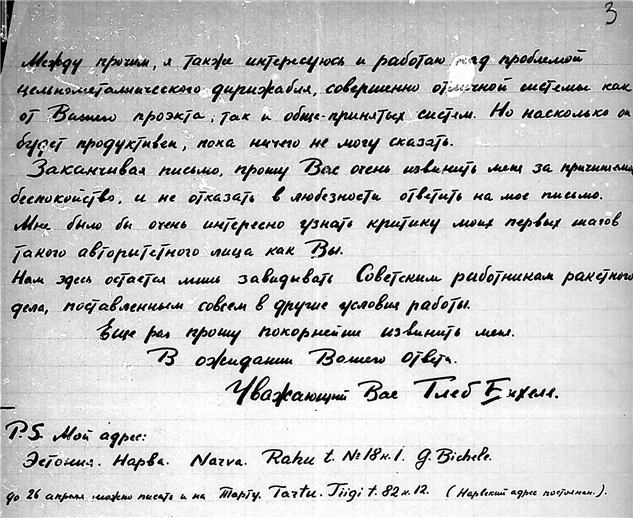 3
Между прочим, я также интересуюсь и работаю над проблемой
цельнометаллического дирижабля, совершенно отличной системы как
от Вашего проэкта, так и обще-принятых систем. Но насколько он
будет продуктивен, пока ничего не могу сказать.
Заканчивая письмо, прошу Вас очень извинить меня за причиненное
беспокойство, и не отказать в любезности ответить на мое письмо.
Мне было бы очень интересно узнать критику моих первых шагов
такого авторитетного лица как Вы.
Нам здесь остается лишь завидывать Советским работникам ракетного
дела, поставленным совсем в другие условия работы.
Еще раз прошу покорнейше извинить меня.
В ожидании Вашего ответа.
Уважающий Вас Глеб
P.S. Мой адрес:
Эстония. Нарва. Narva. Rahu t. №18 к.1. G. Bichele.
До 26 апреля можно писать и на Тарту. Tartu. Tiigi t. 82 к. 12. (Нарвский адрес постоянен.).